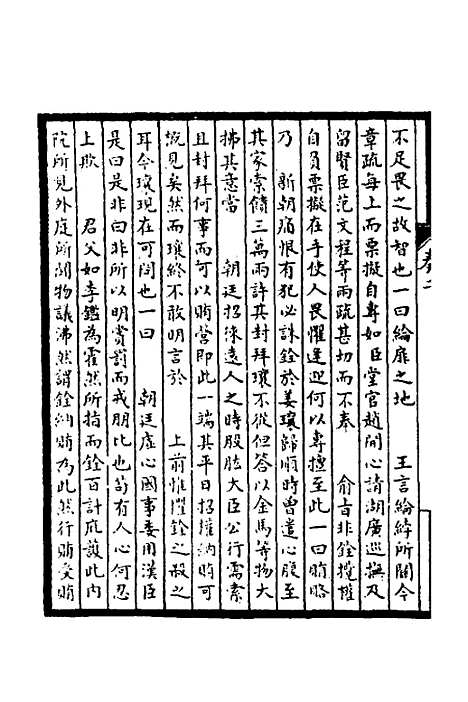 不足畏之故智也一曰綸扉之地　　王言綸綍所關今
章疏每上而票擬自專如臣堂官趙開心請湖廣巡撫及
留賢臣范文程等兩疏甚切而不奉　　俞旨非銓攬權
自負票擬在手使人畏懼逢迎何以專擅至此一曰賄賂
乃　　新朝痛恨有犯必誅銓於姜瓖歸順時曾遣心腹至
其家索餽三萬兩許其封拜瓖不從但答以金馬等物大
拂其意當　　朝廷招徠遠人之時股肱大臣公行需索
且封拜何事而可以賄營即此一端其平日招權納賄可
槪見矣然而瓖終不敢明言於　　上前惟懼銓之殺之
耳今瓖現在可問也一曰　　朝廷虛心國事委用漢臣
是曰是非曰非所以明賞罰而戒朋比也苟有人心何忍
上欺　　君父如李鑑為霍然所指而銓百計庇護此內
院所見外庭所聞物議沸然謂銓納賄為此然行賄受賄
卷二